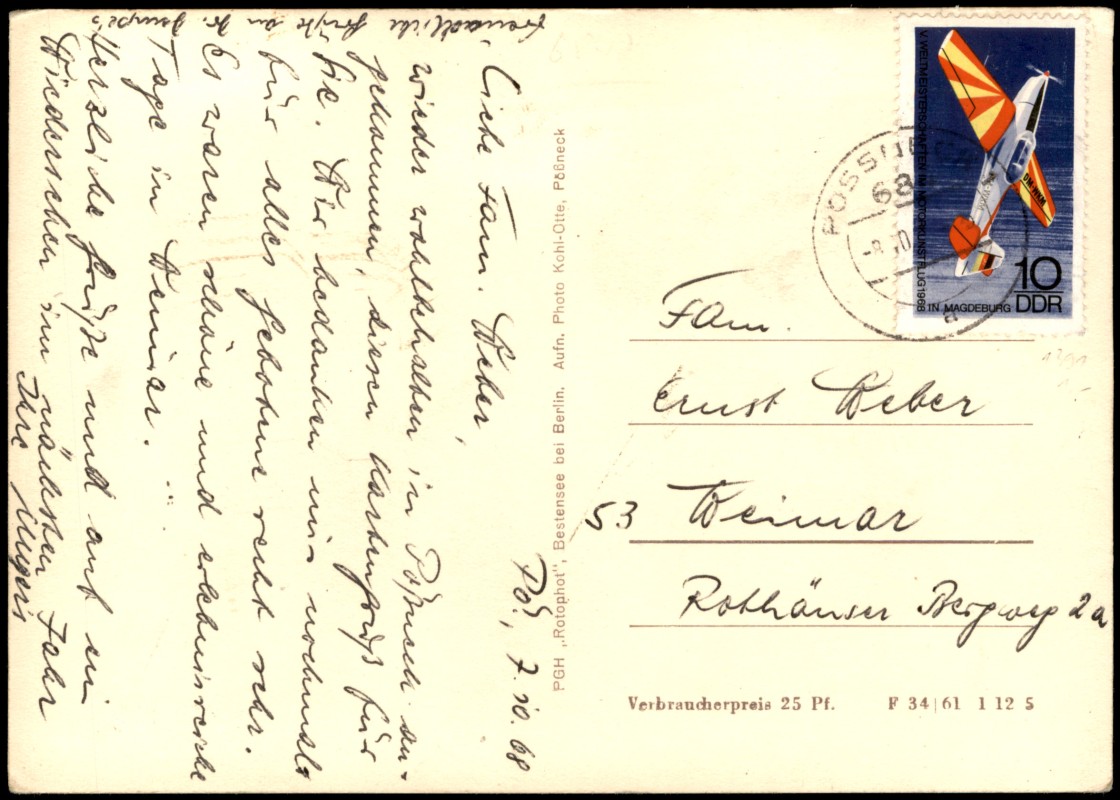 Pö., 7.10.68
Liebe Fam. Weber,
wieder wohlbehalten in Pößneck an-
gekommen, diesen Kartengruß für
Sie. Wir bedanken uns nochmals
für alles Gebotene recht sehr.
Es waren schöne und erlebnisreiche
Tage in Weimar.
Herzliche Grüße und auf ein
Wiedersehen im nächsten Jahr
Ihre
Freundliche Grüße an Fr.
PGH „Rotophot", Bestensee bei Berlin. Aufn. Photo Kohl-Otte, Pößneck
V. WELTMEISTERSCHAFTEN IM MOTORKUNSTFLUG 1968 IN MAGDEBURG
DM-WKM
10
DDR
POSSNECK
68
a
Fam.
Ernst Weber
53 Weimar
Rothäuser Bergweg 2a
Verbraucherpreis 25 Pf. F 34|61 1 12 5